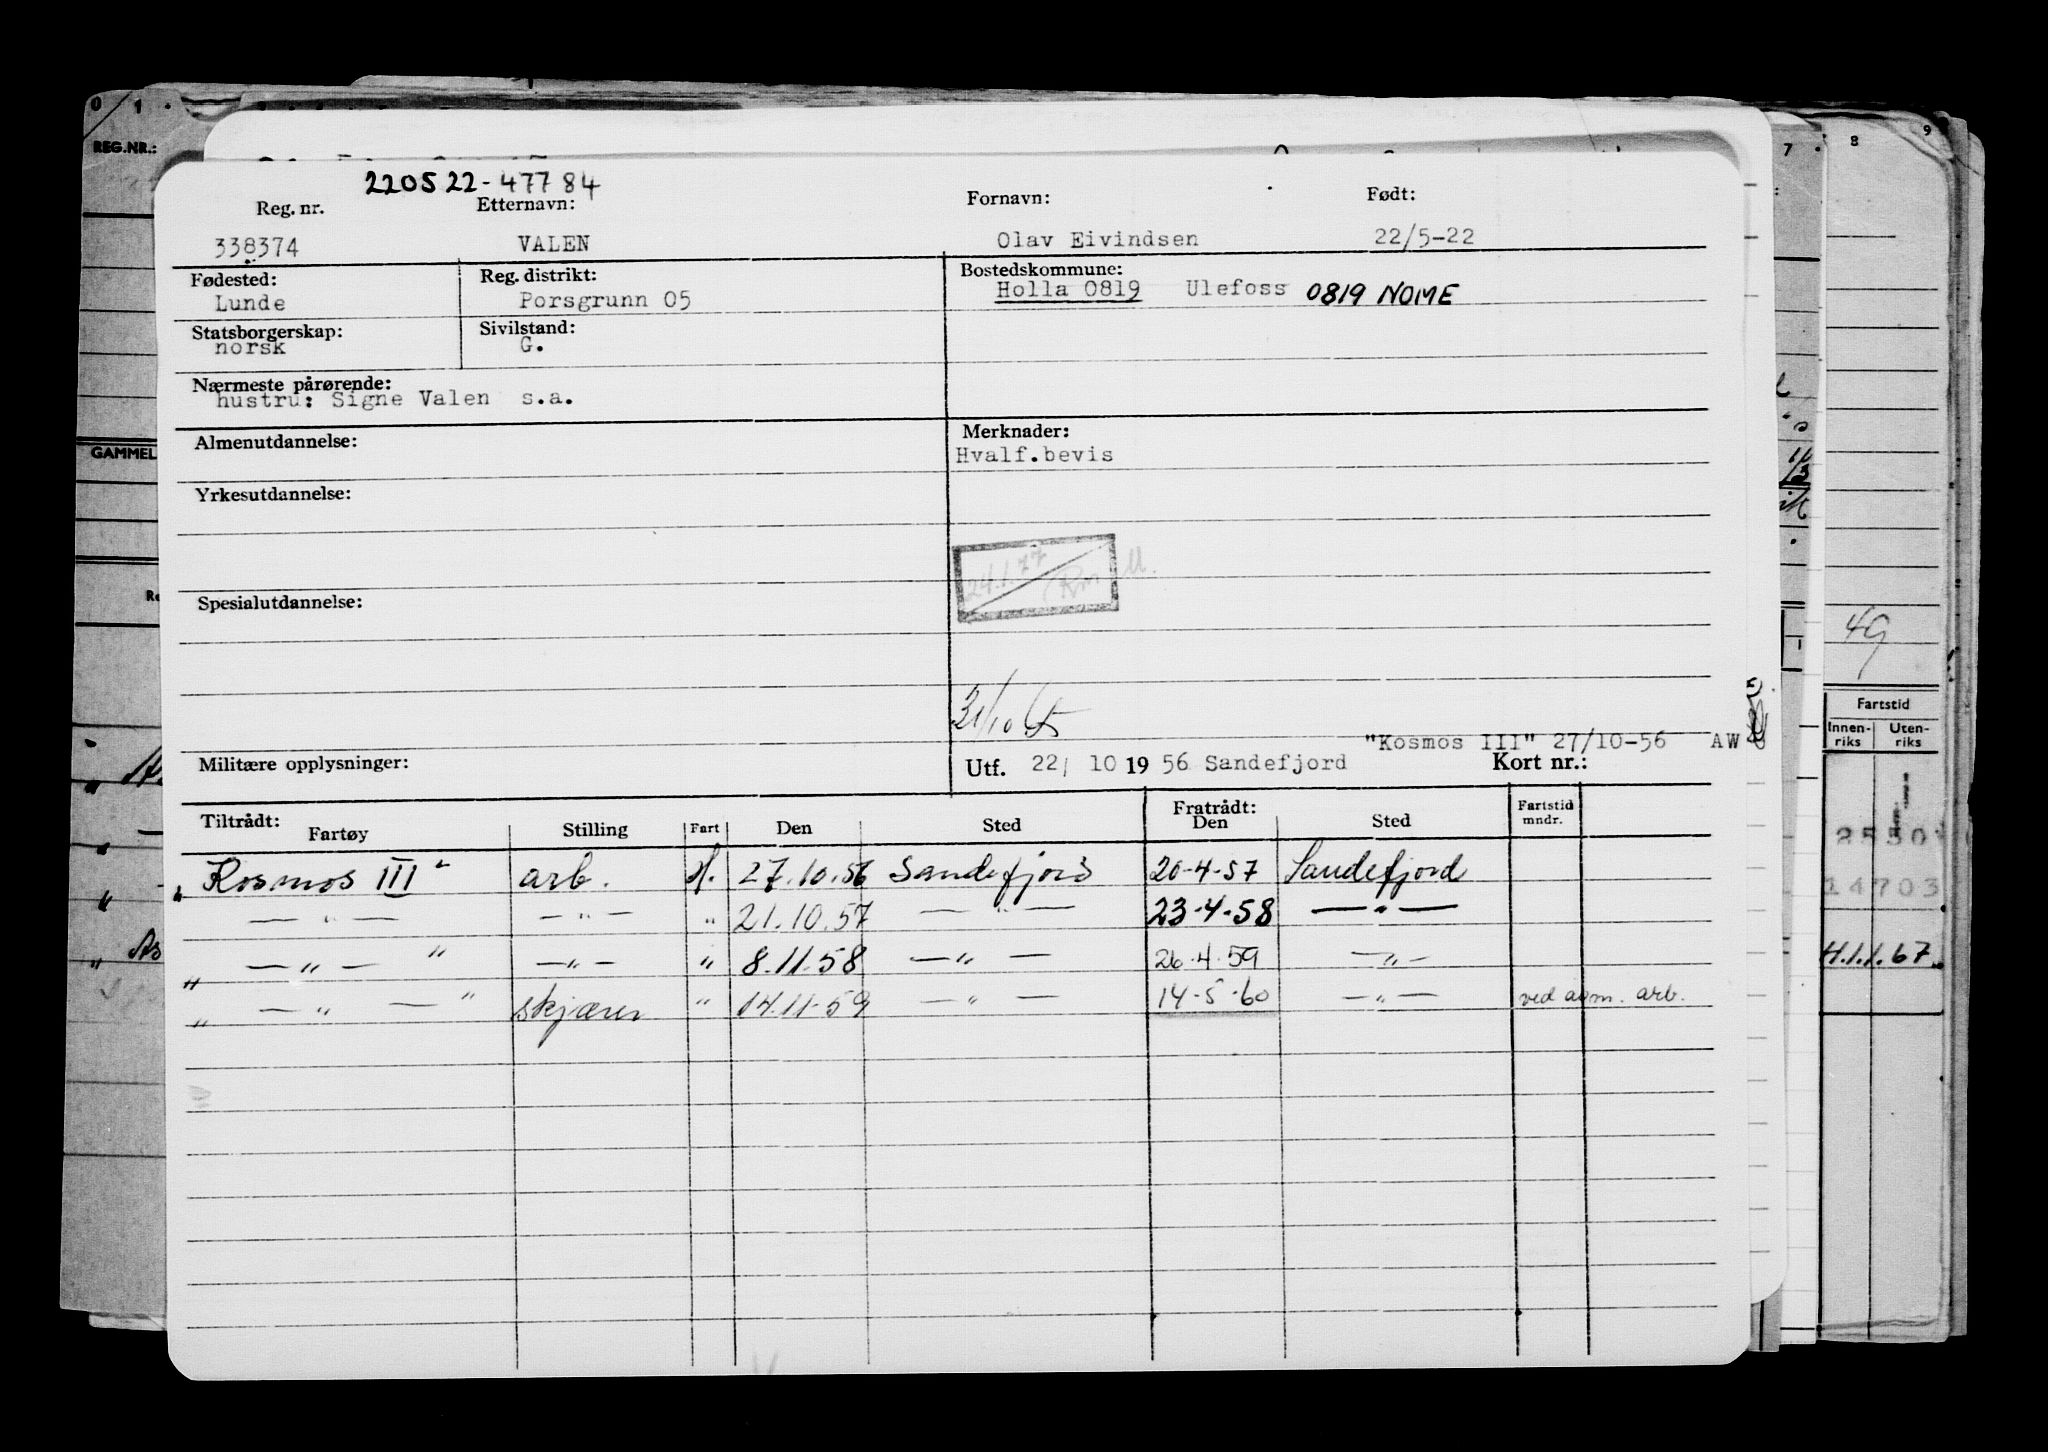 220522-47784
Reg. nr. Etternavn: Fornavn: Født:
338374 VALEN Olav Eivindsen 22/5-22
Fødested: Reg. distrikt: Bostedskommune:
Lunde Porsgrunn 05 Holla 0819 Ulefoss 0819 NOME
Statsborgerskap: Sivilstand:
norsk G.
Nærmeste pårørende:
hustru: Signe Valen s.a.
Almenutdannelse: Merknader:
Hvalf.bevis
Yrkesutdannelse:
24.1.77
Spesialutdannelse:
"Kosmos III" 27/10-56 AW
Militære opplysninger: Utf. 22/ 10 19 56 Sandefjord Kort nr.:
Tiltrådt: Fratrådt: Fartstid
Fartøy Stilling Fart Den Sted Den Sted mndr.
"Kosmos III" arb. H. 27.10.56 Sandefjord 20-4-57 Sandefjord
— " — — " — " 21.10.57 — " — 23-4-58 — " —
" — " — " — " — " 8.11.58 — " — 26-4-59 — " —
" — " — " skjærer " 14.11-59 — " — 14-5-60 — " — ved avm. arb.
0 1
REG.NR.:
GAMMEL
7 8 9
49
Fartstid
Innen-riks Uten-riks
2550
14703
H.1.1.67